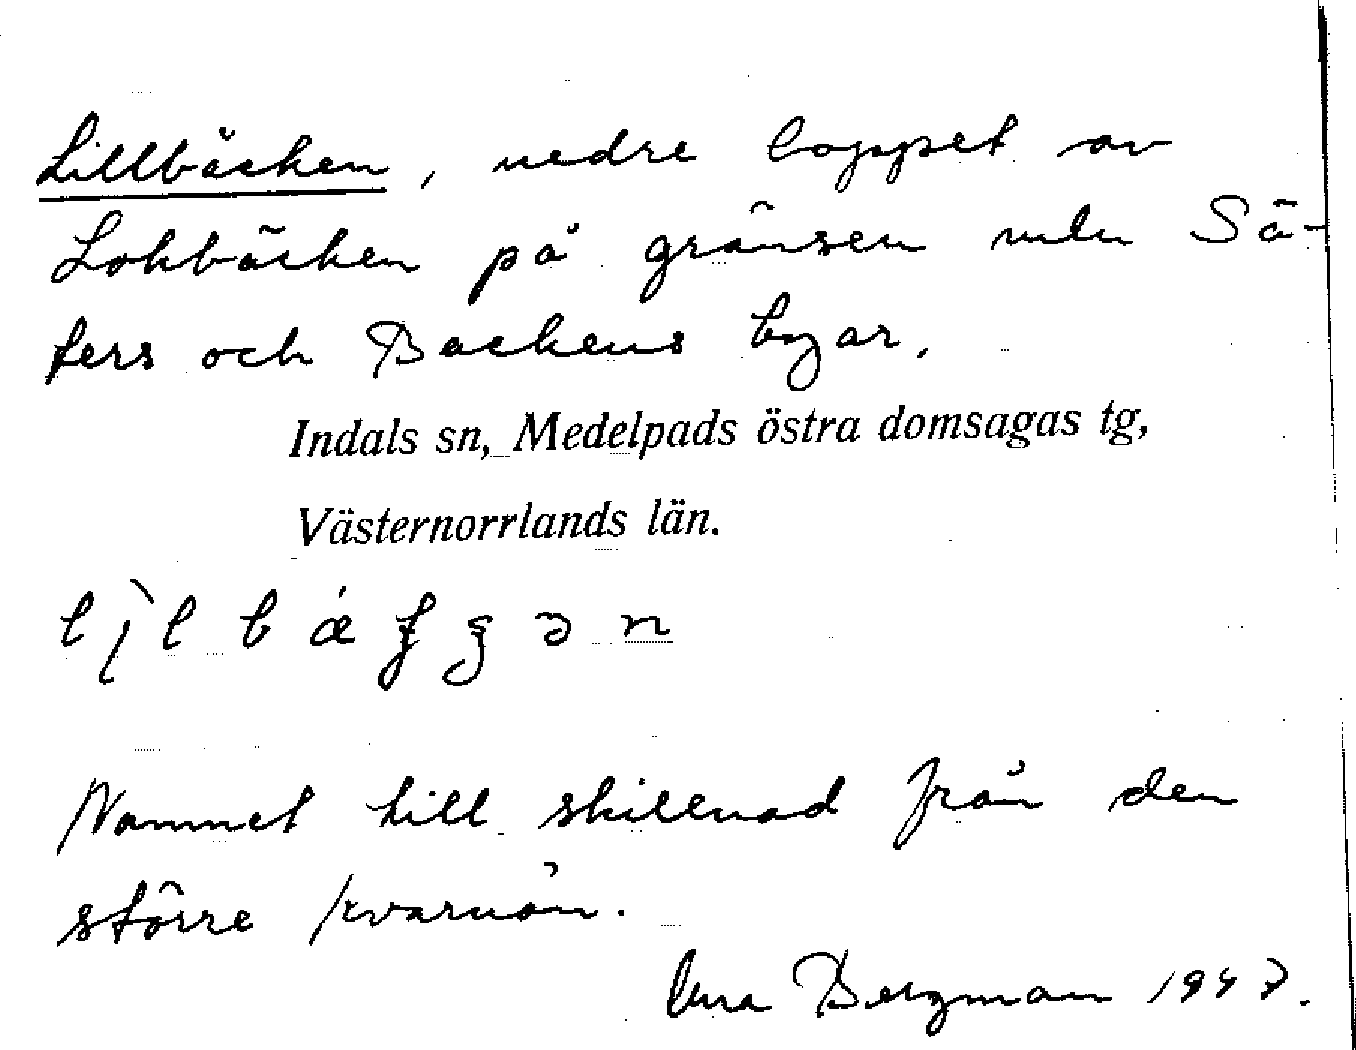 Lillbäcken, nedre loppet av
Lokbäcken på gränsen mln Sä-
ters och Backens byar.
Indals sn, Medelpads östra domsagas tg,
Västernorrlands län.
Nammet till skillnad från den
större kvarnån.
Bergman 1947.